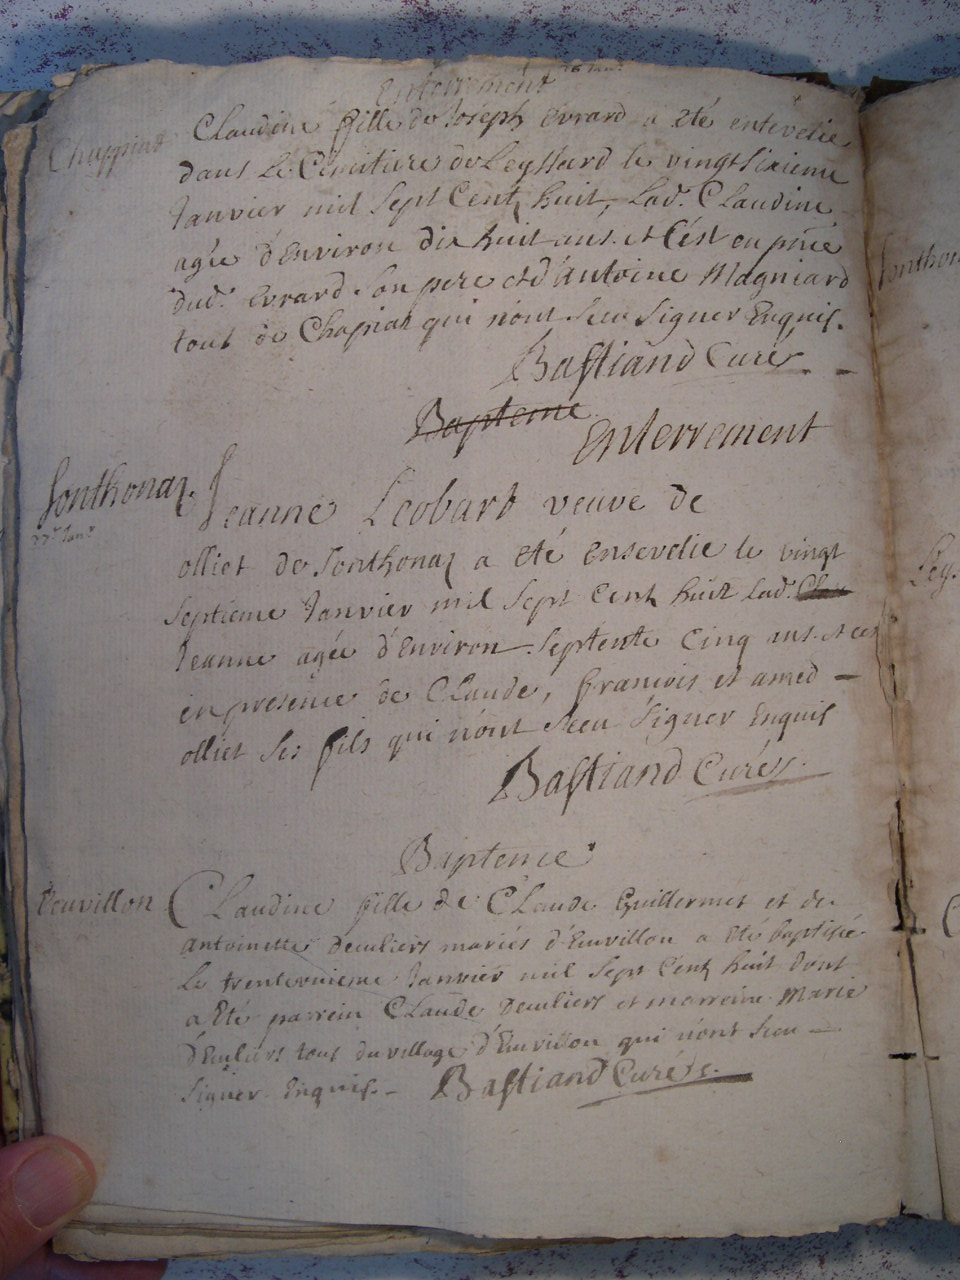 Enterrement 26 Janr
Chappiat
Claudine fille de Joseph Evrard a eté entevelie
dans Le Cimitiere de Leyssard le vingt sixieme
Janvier mil sept Cent huit, Lad. Claudine
agée d'Environ dix huit ans. et C'est en pñce
dud. Evrard son pere et d'Antoine Magniard
tout de Chapiat qui n'ont sceu signer Enquis.
Bastiand Curés
Bapteme
Enterrement
Sonthonaz.
27e Janr
Jeanne Leobart veuve de
olliet de Sonthonaz a eté Ensevelie le vingt
septieme Janvier mil sept Cent huit Lad.
Jeanne agée d'Environ septente Cinq ans. et ce
en presence de Claude, francois et amed
olliet ses fils qui n'ont sceu signer Enquis
Bastiand Curés.
Bapteme
Claudine fille de Claude Guillermet et de
Antoinette mariés d'Euvillon a eté baptisée
Le Janvier mil sept Cent huit dont
a Eté parrein Claude et marreine Marie
tous du village d'Euvillon qui n'ont sceu
signer Enquis. Bastiand Curés.